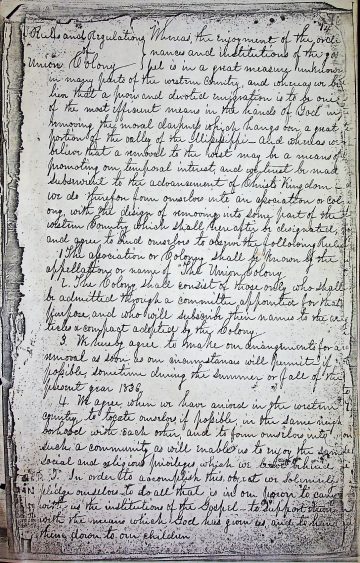 Rules and Regulations Whereas, the enjoyment of the ordi
of nances and institutions of the gos
Union Colony pel is in a great measure unknown
in many parts of the western Country, and whereas we be
lieve that a pious and devoted emigration is to be one
of the most efficient means in the hands of God in
removing the moral darkness which hangs over a great
portion of the valley of the Mississippi. And whereas we
believe that a removal to the west may be a means of
promoting our temporal interest and we trust be made
subservient to the advancement of Christs Kingdom
we do therefore form ourselves into an association or col
ony, with the design of removing into some part of the
western Country which shall hereafter be designated,
and agree to bind ourselves to observe the following Rules
1 The association or Colony shall be known by the
appellation or name of The Union Colony
2. The Colony shall consist of those only who shall
be admitted through a committee appointed for that
purpose, and who will subscribe their names to the ar
ticles & compact adopted by the Colony
3. We hereby agree to make our arrangements for a
removal as soon as our circumstances will permit if
possible sometime during the summer or fall of the
present year 1836.
4. We agree when we have arrived in the western
country to locate ourselves if possible, in the same neigh
borhood with each other, and to form ourselves into
such a community as will enable us to enjoy the same
social and religious privileges which we leave behind
5. In order to accomplish this object we solemnly
pledge ourselves to do all that is in our power to carry
with us the institutions of the Gospel to support them
with the means which God has given us and to hand
them down to our children